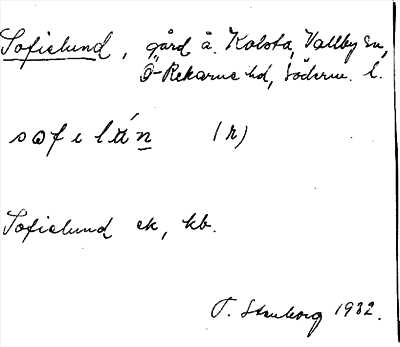 Sofielund, gård å. Kolsta, Vallby sn,
Ö-Rekarne hd, Söderm. l.
sofelún (r)
Sofielund ek, kb.
T. Stenborg 1932.